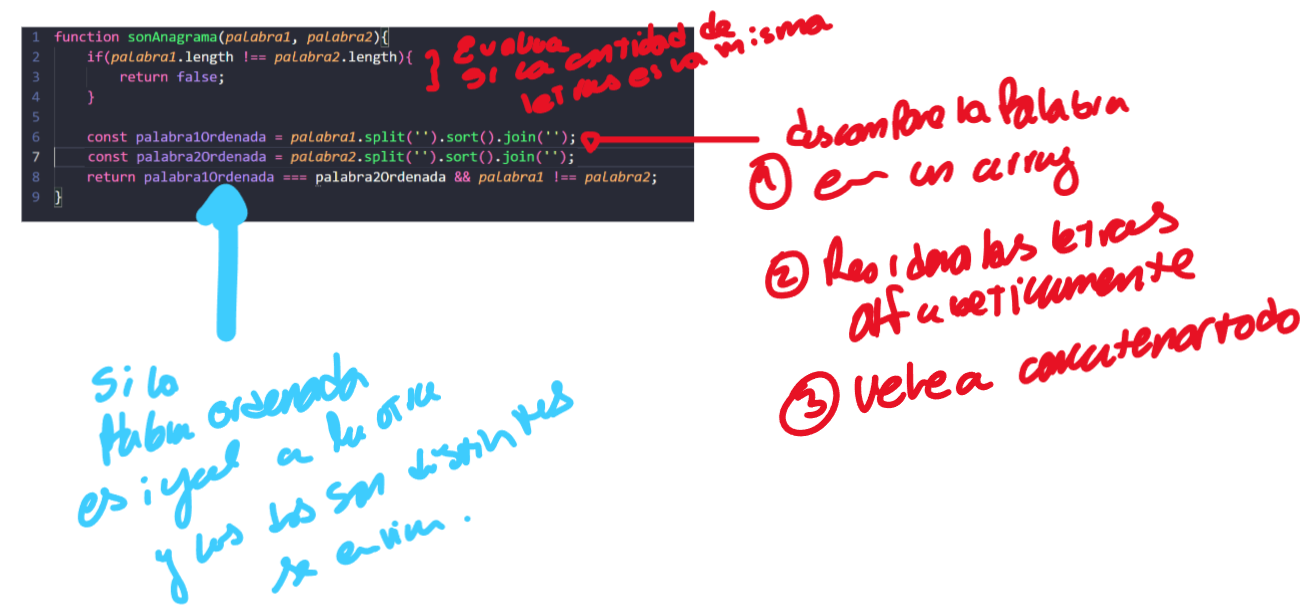 1 function sonAnagrama(palabra1, palabra2){
2 if(palabra1.length !== palabra2.length){
3 return false;
4 }
5
6 const palabra1Ordenada = palabra1.split('').sort().join('');
7 const palabra2Ordenada = palabra2.split('').sort().join('');
8 return palabra1Ordenada === palabra2Ordenada && palabra1 !== palabra2;
9 }
Evalua
si la cantidad de
letras es la misma
descompone la Palabra
1 en un array
2 las letras
alfabeticamente
3 concatenar todo
Si la
Palabra ordenada
es igual a la otra
y las dos son distintas
se envian.